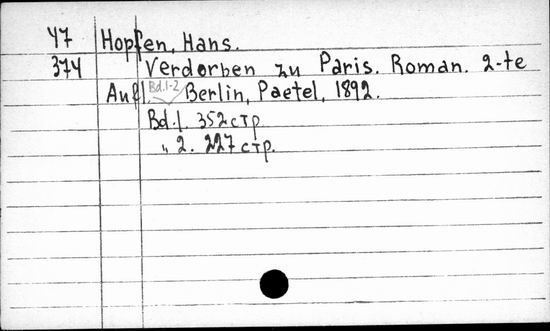 47 Hopfen, Hans.
374 Verdorben zu Paris. Roman. 2-te
Aufl. Bd.1-2 Berlin, Paetel, 1892.
Bd.1. 352 стр.
" 2. 227 стр.